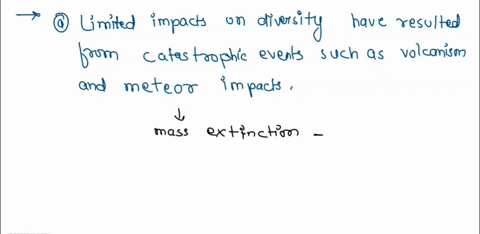 → ⓐ Limited impacts on diversity have resulted
from catastrophic events such as volcanism
and meteor impacts.
↓
mass extinction –